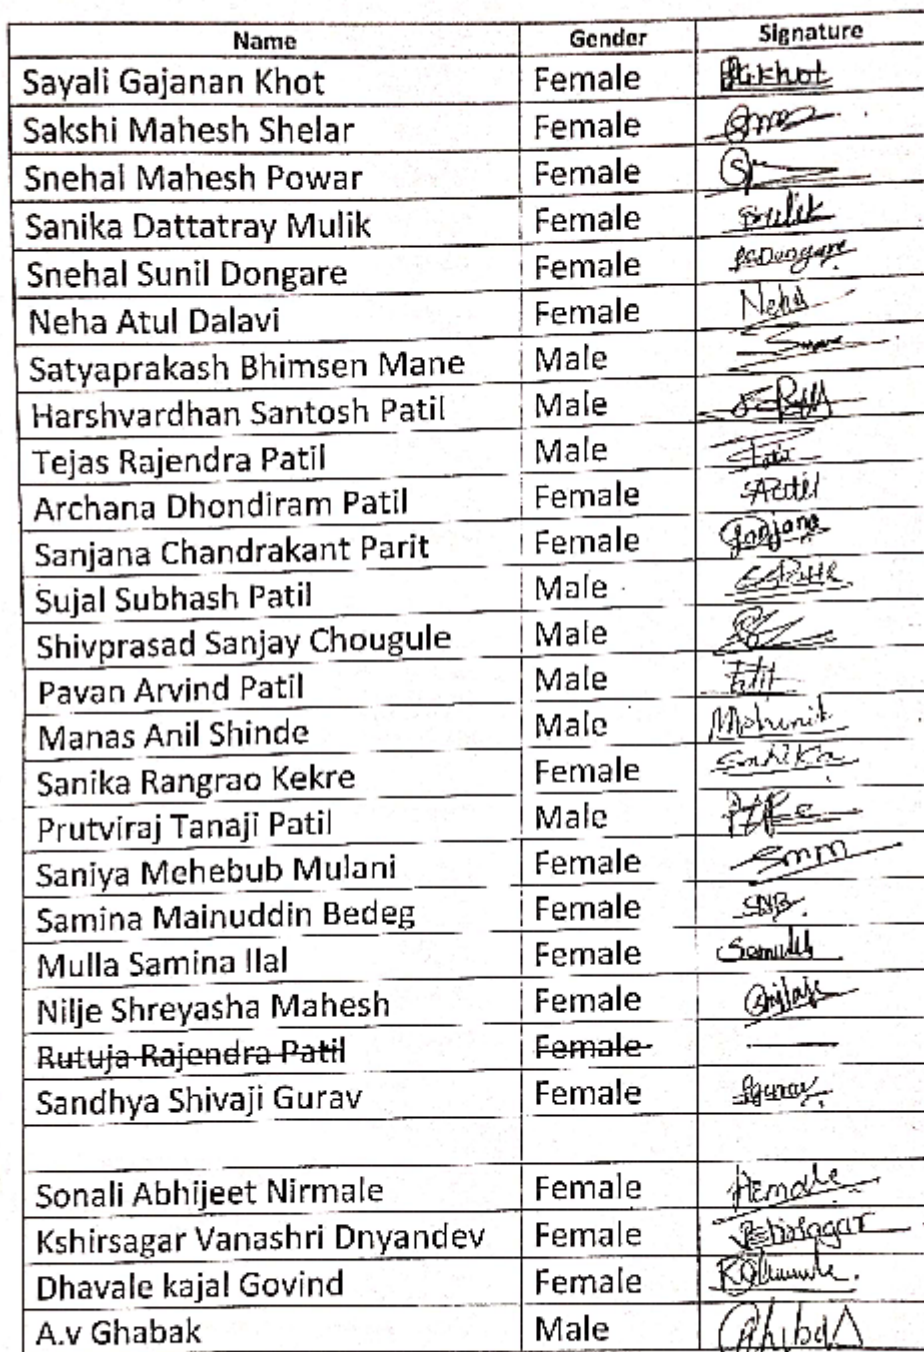 Name Gender Signature
Sayali Gajanan Khot Female Khot
Sakshi Mahesh Shelar Female
Snehal Mahesh Powar Female
Sanika Dattatray Mulik Female
Snehal Sunil Dongare Female SSDongare
Neha Atul Dalavi Female Neha
Satyaprakash Bhimsen Mane Male
Harshvardhan Santosh Patil Male
Tejas Rajendra Patil Male
Archana Dhondiram Patil Female
Sanjana Chandrakant Parit Female Sanjana
Sujal Subhash Patil Male
Shivprasad Sanjay Chougule Male
Pavan Arvind Patil Male
Manas Anil Shinde Male
Sanika Rangrao Kekre Female Sanika
Prutviraj Tanaji Patil Male
Saniya Mehebub Mulani Female Smm
Samina Mainuddin Bedeg Female SNB
Mulla Samina Ilal Female
Nilje Shreyasha Mahesh Female
Rutuja Rajendra Patil Female
Sandhya Shivaji Gurav Female Sgurav
Sonali Abhijeet Nirmale Female
Kshirsagar Vanashri Dnyandev Female
Dhavale kajal Govind Female
A.v Ghabak Male